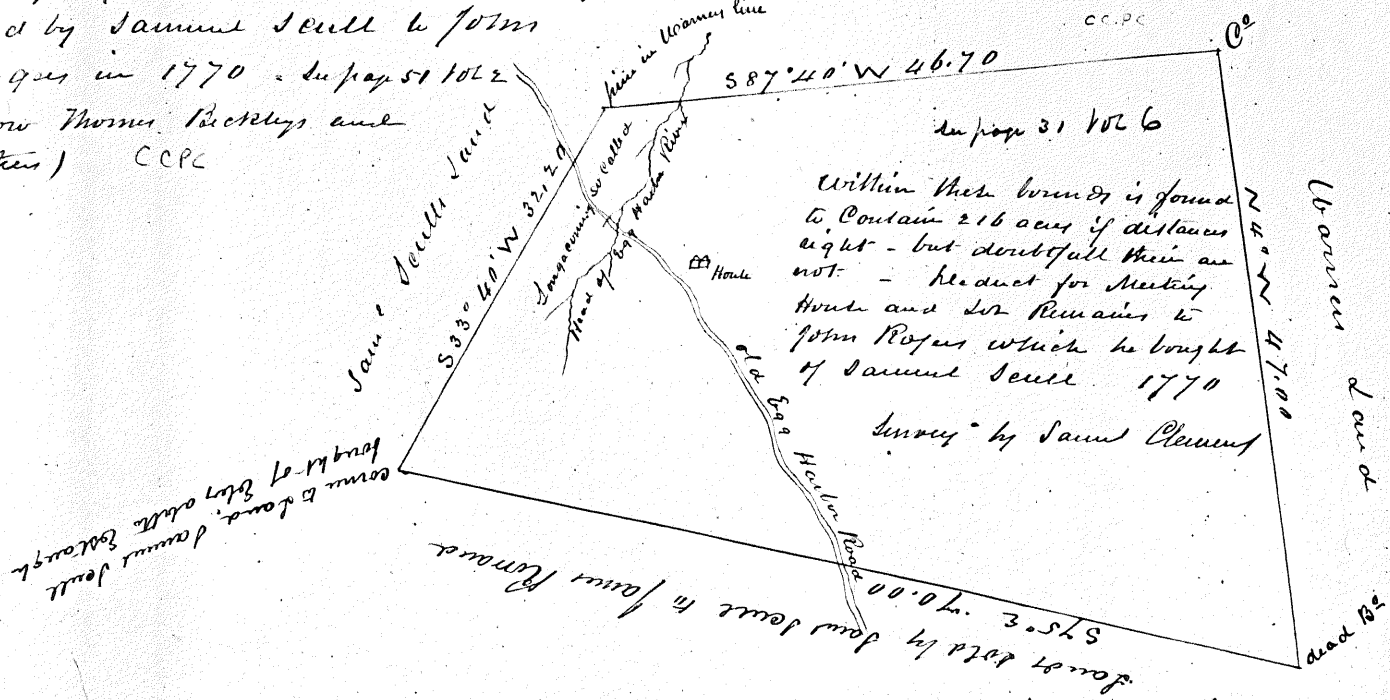 d by Samuel Scull to John
gers in 1770 - See page 51 Vol 2
ow Thomas Beckleys and
CCPC
CCPC
Co
pine in Warney line
S 87° 40' W 46.70
See page 31 Vol 6
Within these bounds is found
to Contain 216 acres if distances
right - but doubtfull their are
not - deduct for Meeting
House and Lot Remains to
John Rogers which he bought
of Samuel Scull 1770
Survey by Samuel Clement
N 4° W 47.00
Warners Land
Saml Sculls Land
S 33° 40' W 32.20
Longacoming so Called
Head of Egg Harbor River
House
old Egg Harbor Road
corner to Land, Samuel Scull
bought of Estaugh
S 75° E 70.00
Lands sold by Saml Scull to James
dead Bo